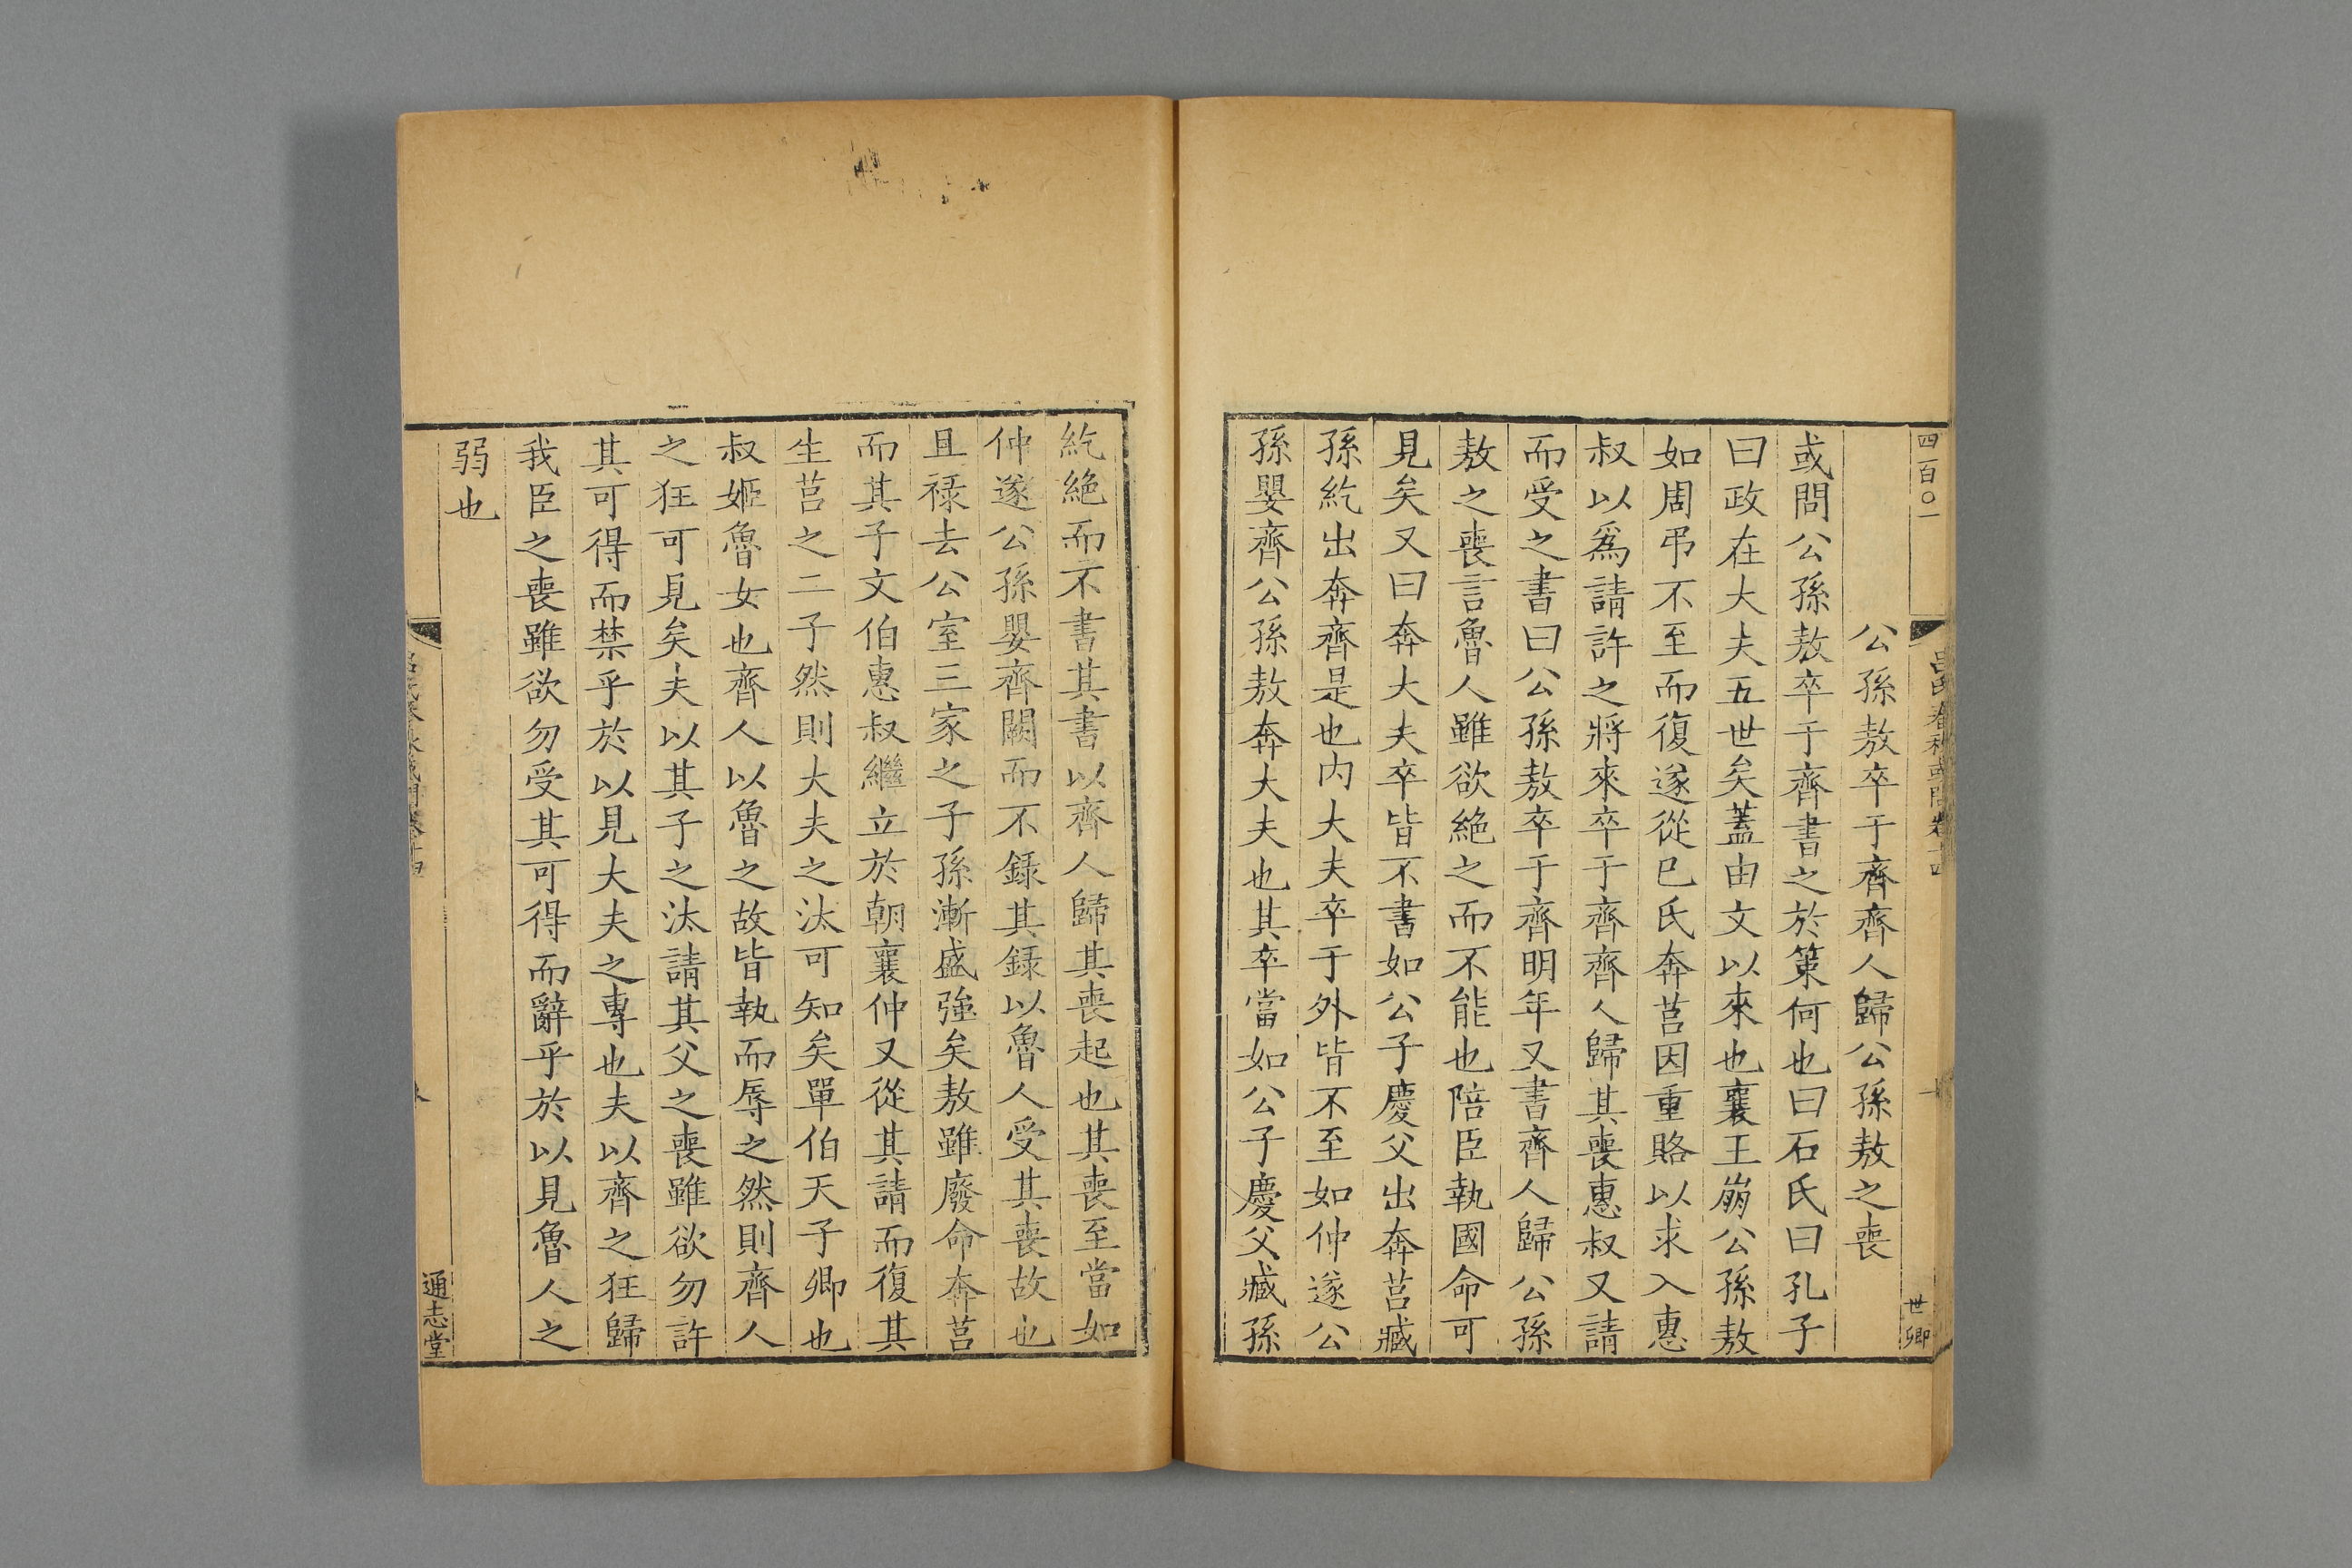 四百〇一
世卿
公孫敖卒于齊齊人歸公孫敖之喪
或問公孫敖卒于齊書之於策何也曰石氏曰孔子
曰政在大夫五世矣蓋由文以來也襄王崩公孫敖
如周弔不至而復遂從巳氏奔莒因重賂以求入惠
叔以爲請許之將來卒于齊齊人歸其喪惠叔又請
而受之書曰公孫敖卒于齊明年又書齊人歸公孫
敖之喪言魯人雖欲絶之而不能也陪臣執國命可
見矣又曰奔大夫卒皆不書如公子慶父出奔莒臧
孫紇出奔齊是也内大夫卒于外皆不至如仲遂公
孫嬰齊公孫敖奔大夫也其卒當如公子慶父臧孫
紇絶而不書其書以齊人歸其喪起也其喪至當如
仲遂公孫嬰齊闕而不錄其録以魯人受其喪故也
且禄去公室三家之子孫漸盛強矣敖雖廢命奔莒
而其子文伯惠叔繼立於朝襄仲又從其請而復其
生莒之二子然則大夫之汰可知矣單伯天子卿也
叔姬魯女也齊人以魯之故皆執而辱之然則齊人
之狂可見矣夫以其子之汰請其父之喪雖欲勿許
其可得而禁乎於以見大夫之專也夫以齊之狂歸
我臣之喪雖欲勿受其可得而辭乎於以見魯人之
弱也
通志堂